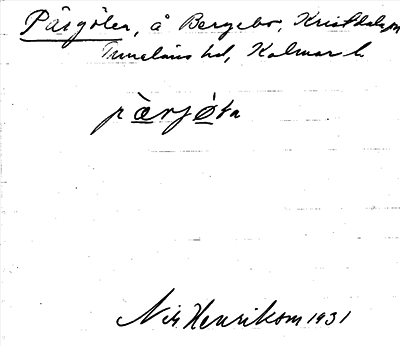 Pärgölen, å Bergebo, Kristdala sn
Tunaläns hd, Kalmar l.
pærjøta
Nils Henrikson 1931